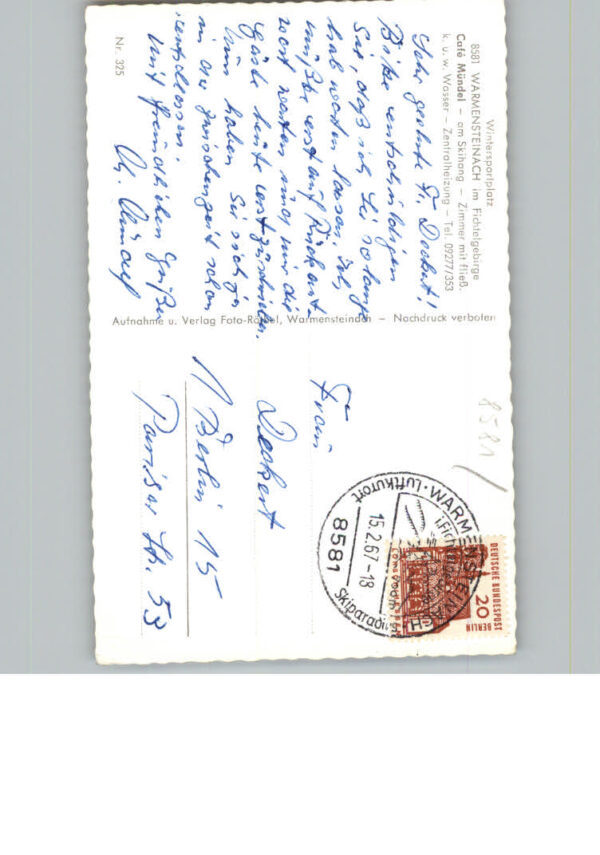 Wintersportplatz
8581 WARMENSTEINACH im Fichtelgebirge
Café Mündel – am Skihang – Zimmer mit fließ.
k. u. w. Wasser – Zentralheizung – Tel. 09277/353
Sehr geehrte Fr. Deckert!
Bitte entschuldigen
Sie, daß ich Sie so lange
hab warten lassen, ich
mußte erst auf Rückant-
wort warten und mir die
Gäste heute
Nun haben Sie sich ja
in der Zwischenzeit schon
entschlossen.
Mit freundlichen Grüßen
Nr. 325
Aufnahme u. Verlag Foto-Rössel, Warmensteinach – Nachdruck verboten
8581
Frau
Deckert
1 Berlin 15
Pariser Str. 53
WARMENSTEINACH
i. Fichtelgebirge
Luftkurort
15.2.67-18
8581
Skiparadies
DEUTSCHE BUNDESPOST
BERLIN
20